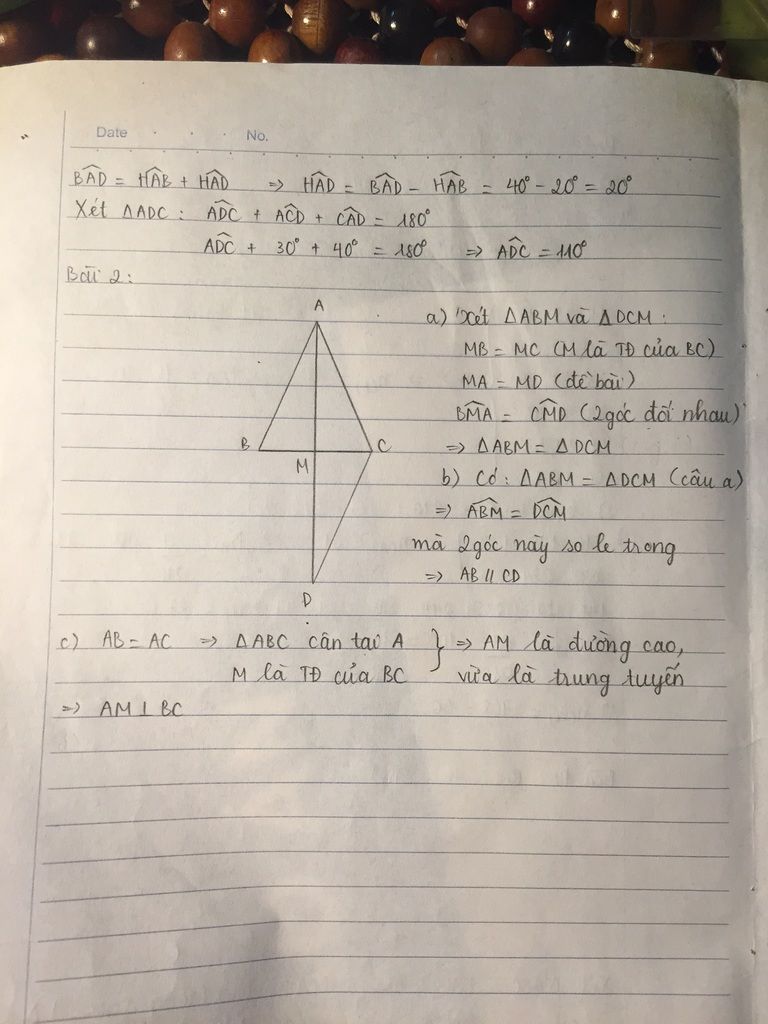 Date . . . No.
BÂD = HÂB + HÂD => HÂD = BÂD - HÂB = 40° - 20° = 20°
Xét ΔADC : AD̂C + AĈD + CÂD = 180°
AD̂C + 30° + 40° = 180° => AD̂C = 110°
Bài 2:
A
B
M
C
D
a) Xét ΔABM và ΔDCM :
MB = MC (M là TĐ của BC)
MA = MD (đề bài)
BM̂A = CM̂D (2 góc đối nhau)
=> ΔABM = ΔDCM
b) Có : ΔABM = ΔDCM (câu a)
=> AB̂M = DĈM
mà 2 góc này so le trong
=> AB // CD
c) AB = AC => ΔABC cân tại A } => AM là đường cao,
M là TĐ của BC vừa là trung tuyến
=> AM ⊥ BC